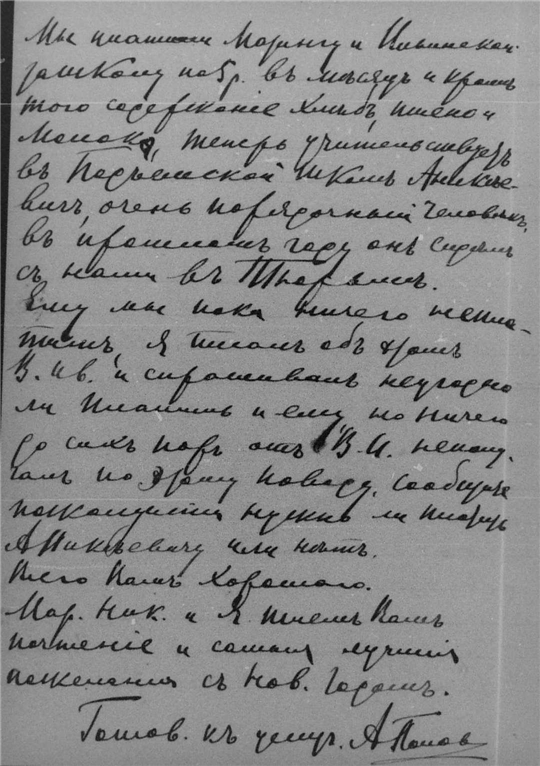 Мы платили Марингу и Ильинской
по 5 р. въ мѣсяцъ и кромѣ
того содержаніе хлѣбъ, пшено и
молоко, теперь учительствуетъ
въ школѣ Аникѣе-
вичъ, очень порядочный человѣкъ,
въ прошломъ году онъ сидѣлъ
съ нами въ Тюрьмѣ.
Ему мы пока ничего непла-
тимъ, я писалъ объ этомъ
В. Ив. и спрашивалъ неугодно
ли платить и ему но ничего
до сихъ поръ отъ В. И. неполу-
чалъ по этому поводу. Сообщите
пожалуйста нужно ли платить
Аникѣевичу или нѣтъ.
Всего Вамъ хорошаго.
Мар. Ник. и я шлемъ Вамъ
почтеніе и самыя лучшія
пожеланія съ Нов. Годомъ.
Готов. къ услуг. А Попов